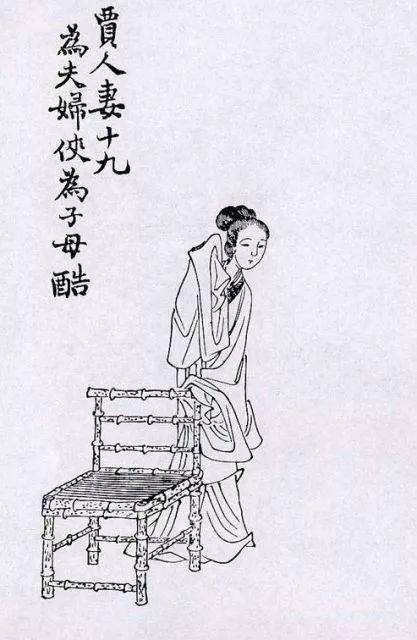 賈人妻十九
為夫婦俠為子母酷